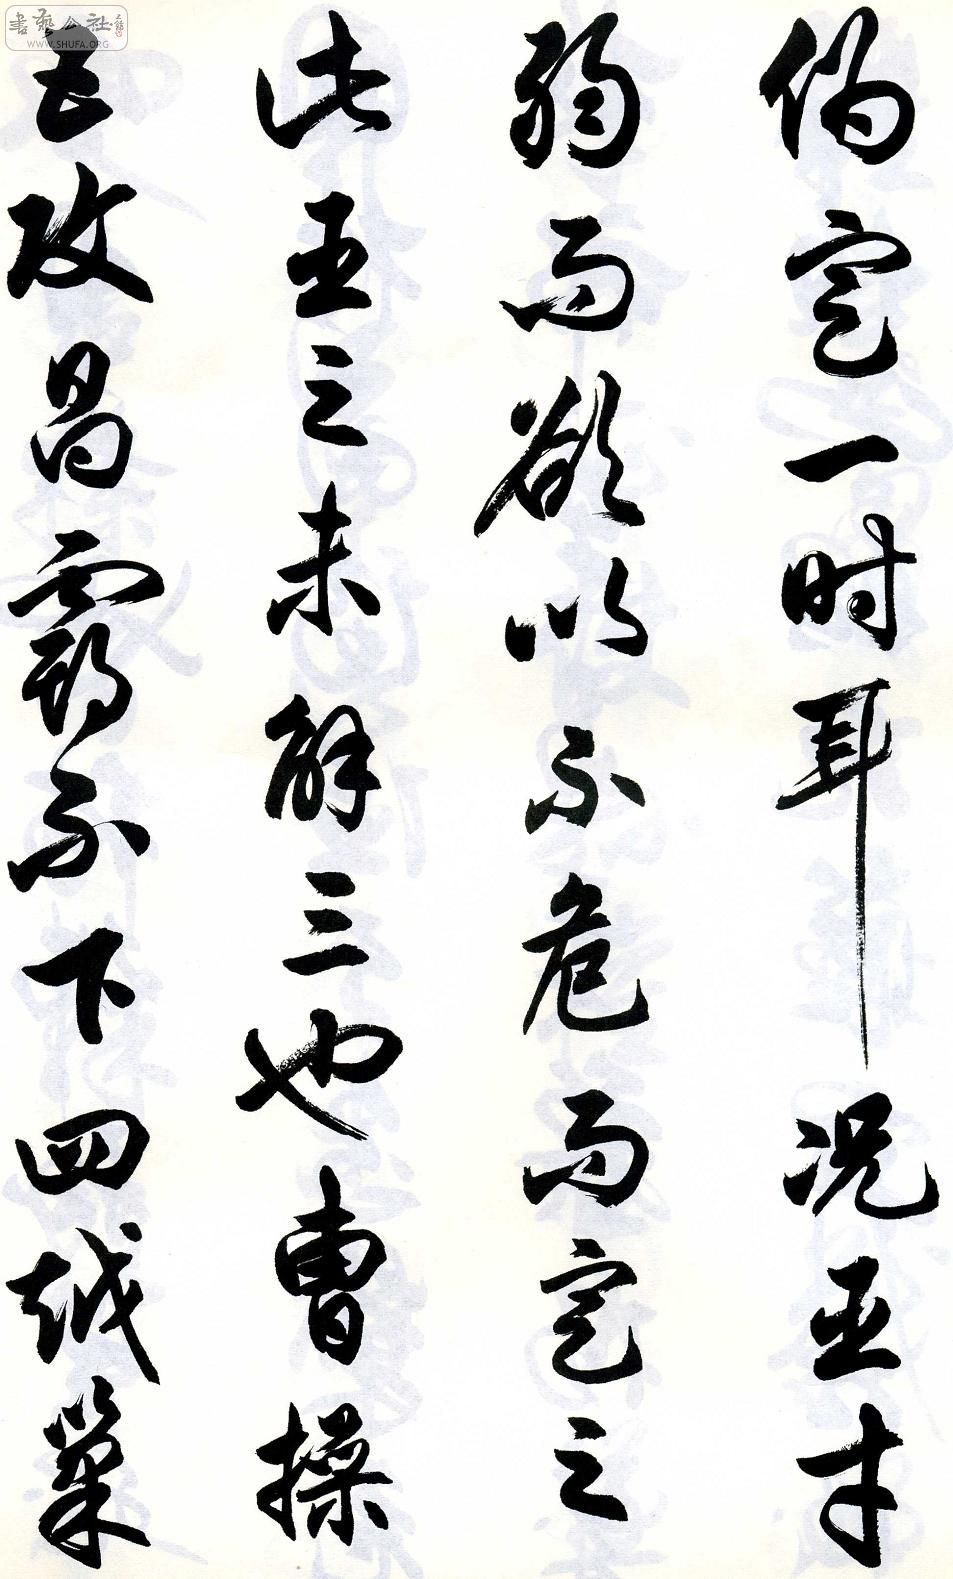 伪定一时耳况臣才
弱而欲以不危而定之
此臣之未解三也曹操
五攻昌霸不下四越巢
書藝公社
WWW.SHUFA.ORG